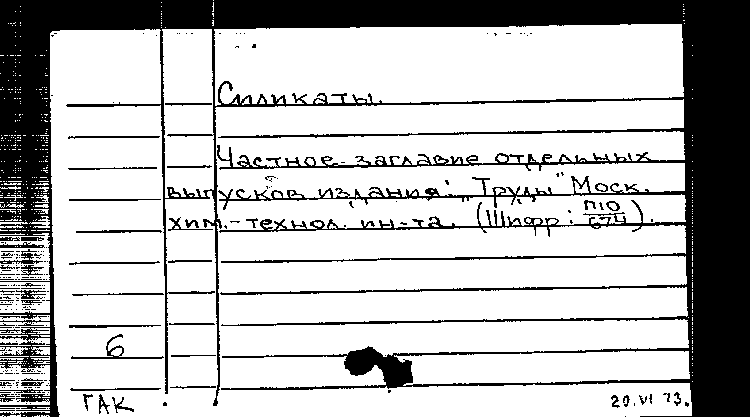 Силикаты.
Частное заглавие отдельных
выпусков издания: "Труды" Моск.
хим.-технол. ин-та. (Шифр: П10/674).
6
ГАК
20.VI 73.